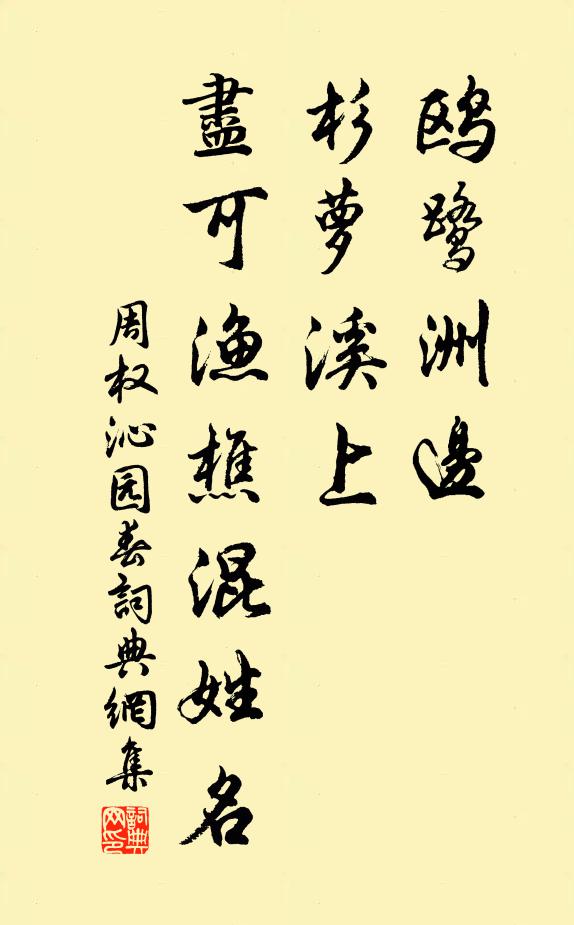 鸥鹭洲邊
杉萝溪上
盡可渔樵混姓名
周权沁园春詞典網集
詞典网印